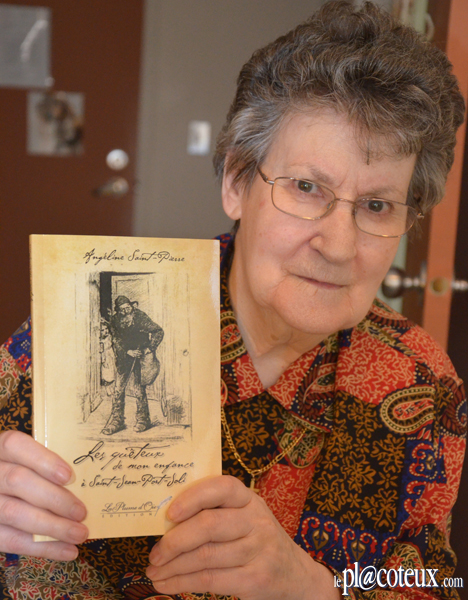 Angéline Saint-Pierre
Les quêteux
de mon enfance
à Saint-Jean-Port-Joli
Les Plumes d'Oc
ÉDITIONS
lepl@coteux.com